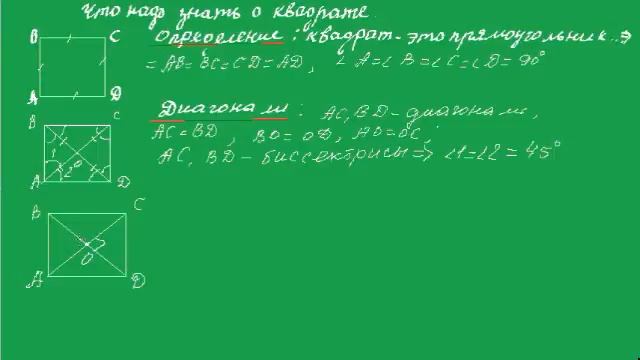 Что надо знать о квадрате.
Определение: квадрат-это прямоугольник..⇒
⇒ AB=BC=CD=AD, ∠A=∠B=∠C=∠D=90°
Диагонали: AC, BD-диагонали,
AC=BD, BO=OD, AO=OC;
AC, BD-биссектрисы⇒ ∠1=∠2=45°
B C
A D
B C
1
2 O
A D
B C
O
A D